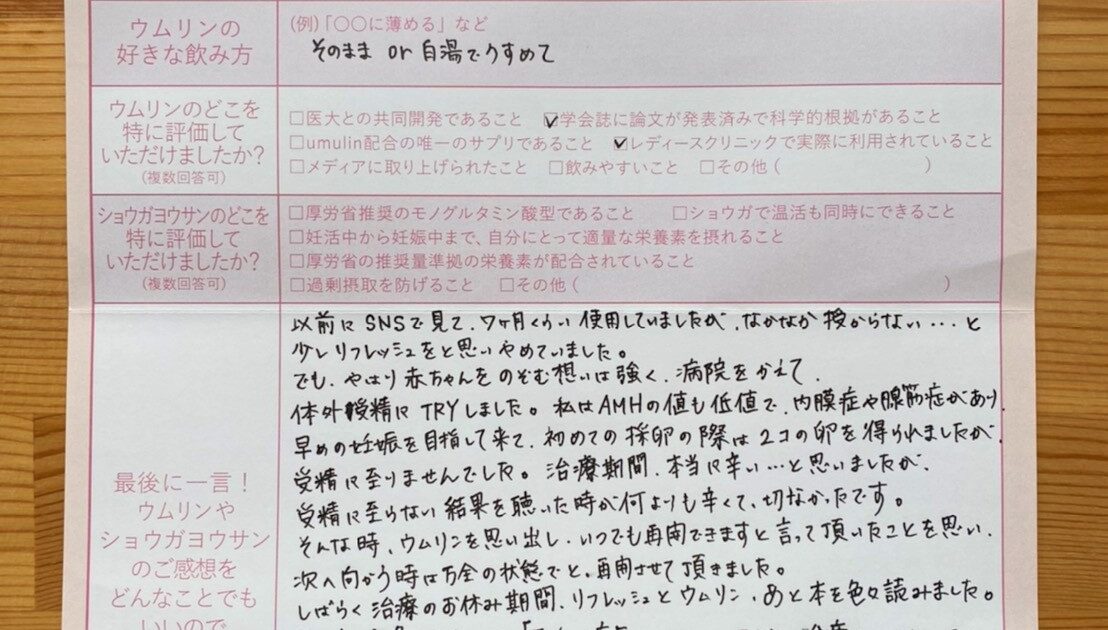 ウムリンの
好きな飲み方
(例)「〇〇に薄める」など
そのまま or 白湯でうすめて
ウムリンのどこを
特に評価して
いただけましたか?
(複数回答可)
□医大との共同開発であること ☑学会誌に論文が発表済みで科学的根拠があること
□umulin配合の唯一のサプリであること ☑レディースクリニックで実際に利用されていること
□メディアに取り上げられたこと □飲みやすいこと □その他( )
ショウガヨウサンのどこを
特に評価して
いただけましたか?
(複数回答可)
□厚労省推奨のモノグルタミン酸型であること □ショウガで温活も同時にできること
□妊活中から妊娠中まで、自分にとって適量な栄養素を摂れること
□厚労省の推奨量準拠の栄養素が配合されていること
□過剰摂取を防げること □その他( )
最後に一言!
ウムリンや
ショウガヨウサン
のご感想を
どんなことでも
いいので
以前にSNSで見て、7ヶ月くらい使用していましたが、なかなか授からない…と
少しリフレッシュをと思いやめていました。
でも、やはり赤ちゃんをのぞむ想いは強く、病院をかえて、
体外授精にTRYしました。私はAMHの値も低値で、内膜症や腺筋症があり、
早めの妊娠を目指して来て、初めての採卵の際は2コの卵を得られましたが、
受精に至りませんでした。治療期間、本当に辛い…と思いましたが、
受精に至らない結果を聴いた時が何よりも辛くて、切なかったです。
そんな時、ウムリンを思い出し、いつでも再開できますと言って頂いたことを思い、
次へ向かう時は万全の状態でと、再開させて頂きました。
しばらく治療のお休み期間、リフレッシュとウムリン、あと本を色々読みました。